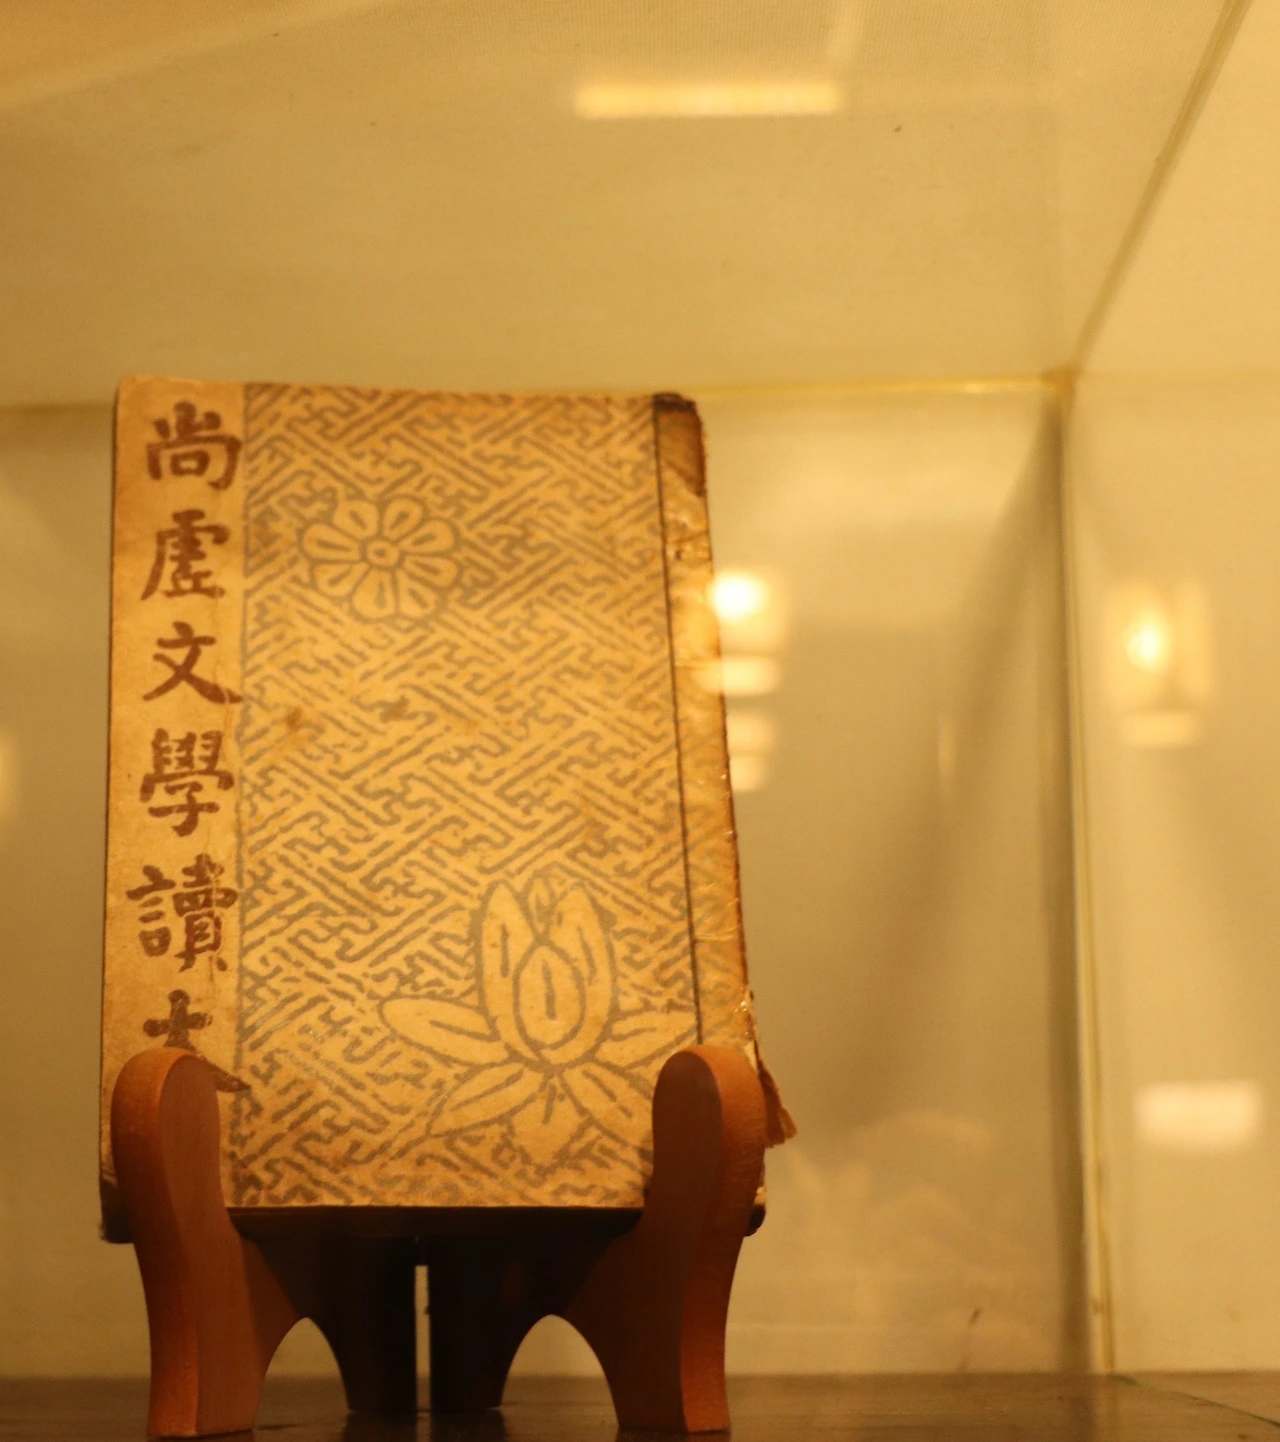 尚虛文學讀本